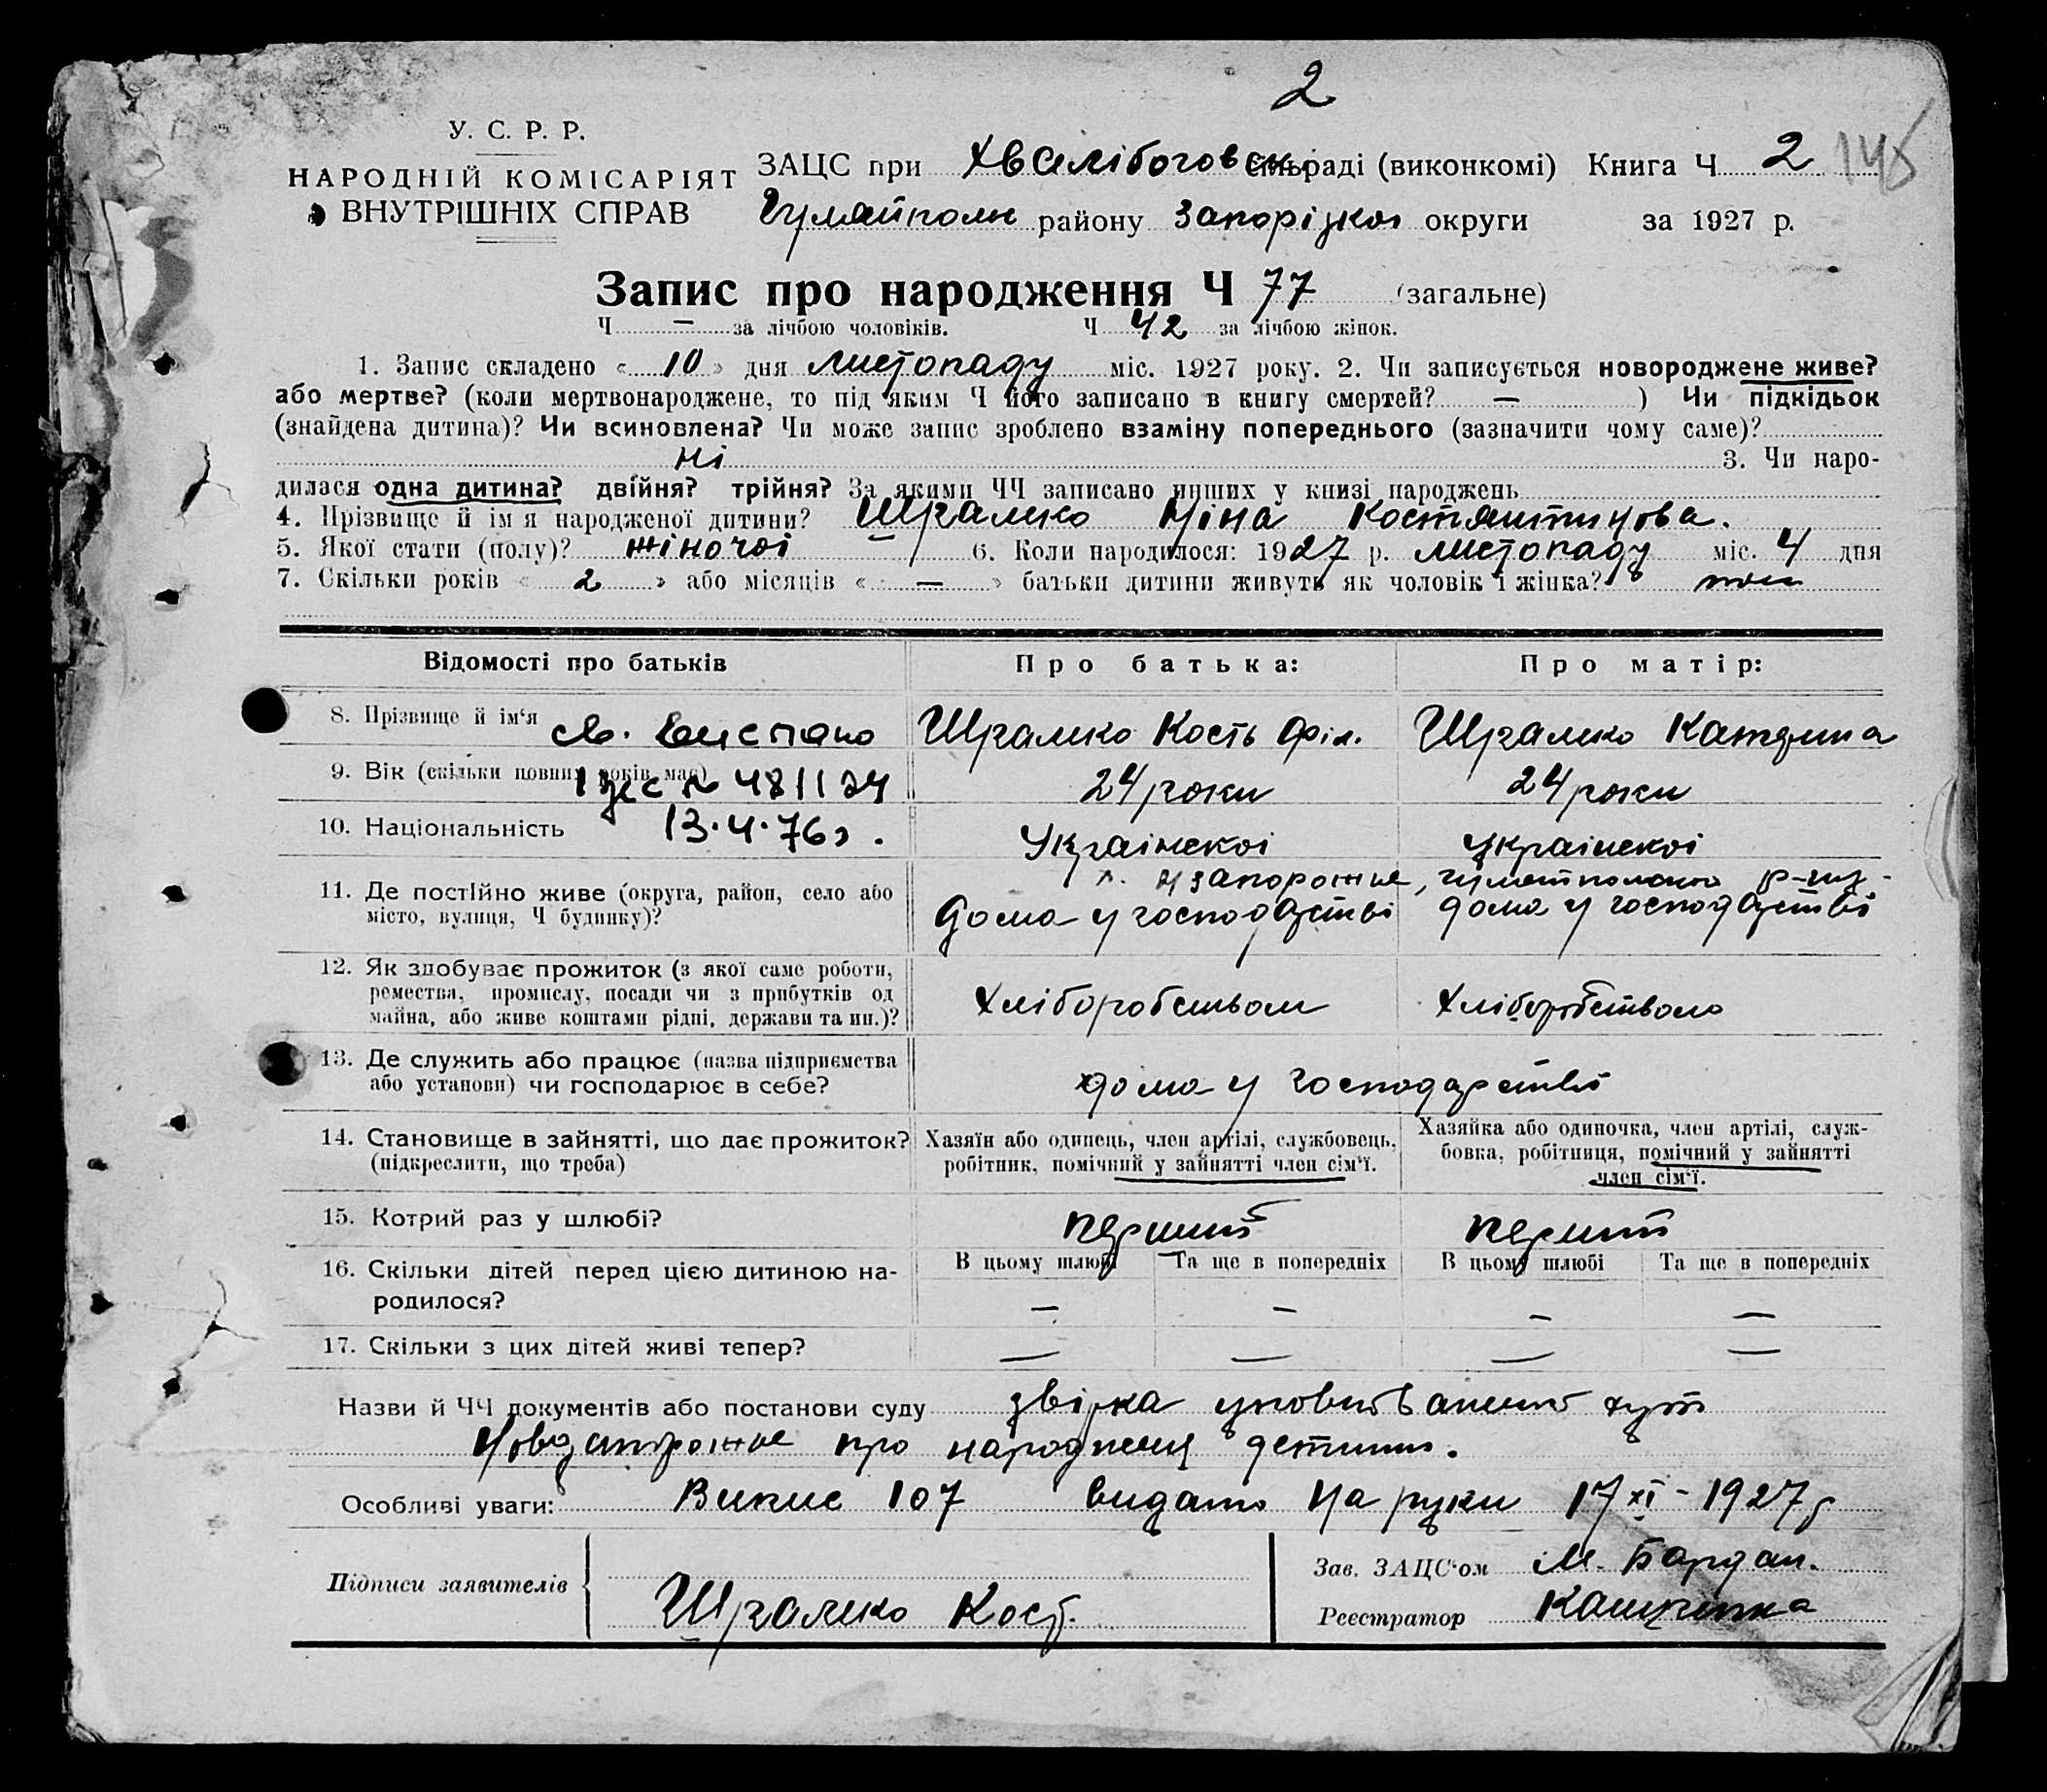 2
У. С. Р. Р.
НАРОДНІЙ КОМІСАРІЯТ
ВНУТРІШНІХ СПРАВ
ЗАЦС при Хвалібоговск. сільраді (виконкомі) Книга Ч 2 145
Гуляйполь району Запорізкоі округи за 1927 р.
Запис про народження Ч 77 (загальне)
Ч — за лічбою чоловіків. Ч 42 за лічбою жінок.
1. Запис складено « 10 » дня листопаду міс. 1927 року. 2. Чи записується новороджене живе?
або мертве? (коли мертвонароджене, то під яким Ч його записано в книгу смертей? — ) Чи підкідьок
(знайдена дитина)? Чи всиновлена? Чи може запис зроблено взаміну попереднього (зазначити чому саме)?
ні 3. Чи наро-
дилася одна дитина? двійня? трійня? За якими ЧЧ записано инших у книзі народжень
4. Прізвище й ім'я народженої дитини? Шрамко Ніна Костянтинова.
5. Якої стати (полу)? жіночоі 6. Коли народилося: 1927 р. листопаду міс. 4 дня
7. Скільки років « 2 » або місяців « — » батьки дитини живуть як чоловік і жінка?
Відомості про батьків Про батька: Про матір:
8. Прізвище й ім'я Шрамко Кость Філ. Шрамко Катерина
св.
9. Вік (скільки повних років має) 24 роки 24 роки
10. Національність 13.4.76г. Украінскоі Украінскоі
11. Де постійно живе (округа, район, село або місто, вулиця, Ч будинку)?
Н Запорожье, гуляйпольського р-ну
дома у господарстві дома у господарстві
12. Як здобуває прожиток (з якої саме роботи,
ремества, промислу, посади чи з прибутків од
майна, або живе коштами рідні, держави та ин.)?
Хліборобством Хліборобством
13. Де служить або працює (назва підприємства
або установи) чи господарює в себе?
дома у господарстві
14. Становище в зайнятті, що дає прожиток?
(підкреслити, що треба)
Хазяїн або одинець, член артілі, службовець,
робітник, помічний у зайнятті член сім'ї.
Хазяйка або одиночка, член артілі, служ-
бовка, робітниця, помічний у зайнятті
член сім'ї.
15. Котрий раз у шлюбі? перший перший
16. Скільки дітей перед цією дитиною на-
родилося?
В цьому шлюбі Та ще в попередніх В цьому шлюбі Та ще в попередніх
— — — —
17. Скільки з цих дітей живі тепер? — — — —
Назви й ЧЧ документів або постанови суду звірка хут
Новозапорожье про народження детини.
Особливі уваги: Випис 107 видано на руки 17 XI - 1927 р
Підписи заявителів Шрамко Кост.
Зав. ЗАЦС'ом М. Бардан.
Реєстратор